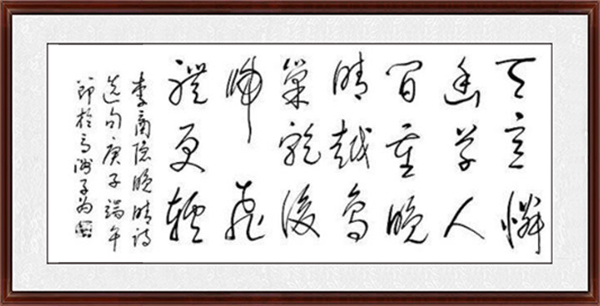 天意憐
幽草人
間重晚
晴越鳥
巢乾後
歸飛
體更輕
李商隱晚晴詩
选句庚子端午
節於